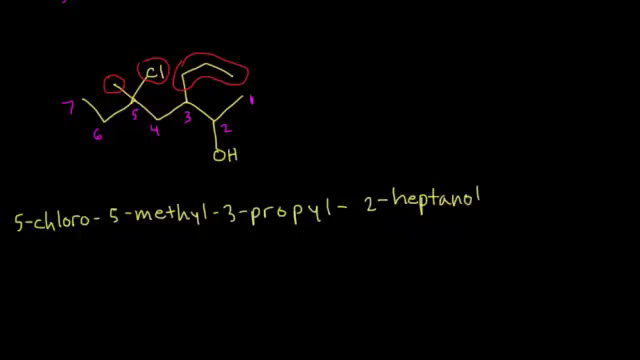 Cl
7
5
1
6
4
3
2
OH
5-chloro-5-methyl-3-propyl-2-heptanol